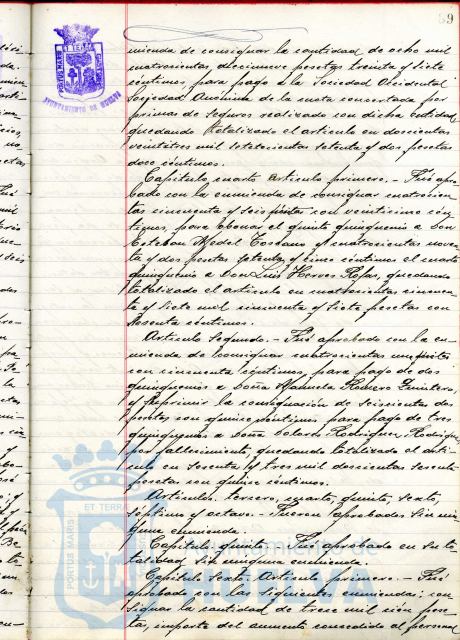 59
PORTUS MARIS ET TERRAE
AYUNTAMIENTO DE HUELVA
mienda de consignar la cantidad de ocho mil
cuatrocientas diecinueve pesetas treinta y siete
céntimos para pago a la Sociedad Occidental
Sociedad Anónima de la cuota concertada por
primas de seguros realizado con dicha entidad
quedando totalizado el articulo en doscientas
veintitres mil setecientas setenta y dos pesetas
doce céntimos.
Capitulo cuarto Articulo primero.- Fué apro-
bado con la enmienda de consignar cuatrocien-
tas cincuenta y seis pesetas con veinticinco cén-
timos, para abonar el quinto quinquenio a Don
Esteban Medel Toscano y cuatrocientas noven-
ta y dos pesetas setenta y cinco céntimos el cuarto
quinquenio a Don Luis Hervos Rofas, quedando
totalizado el articulo en cuatrocientas cincuen-
ta y siete mil cincuenta y siete pesetas con
sesenta céntimos.
Articulo Segundo.- Fué aprobado con la en-
mienda de consignar cuatrocientas
con cincuenta céntimos, para pago de dos
quinquenios a Doña Manuela Romero Quintero,
y suprimir la consignación de seiscientas dos
pesetas con quince céntimos para pago de tres
quinquenios a Doña Dolores Rodriguez Rodriguez
por fallecimiento, quedando totalizado el arti-
culo en sesenta y tres mil doscientas sesenta
pesetas con quince céntimos.
Articulos tercero, cuarto, quinto, sexto,
séptimo y octavo.- Fueron aprobados sin nin-
guna enmienda.
Capitulo quinto.- Fué aprobado en su to-
talidad sin ninguna enmienda.
Capitulo Sexto. Articulo primero.- Fué
aprobado con las siguientes enmiendas; con-
signar la cantidad de trece mil cien pese-
tas, importe del aumento concedido al personal
PORTUS MARIS ET TERRAE
Ayuntamiento de
HUELVA